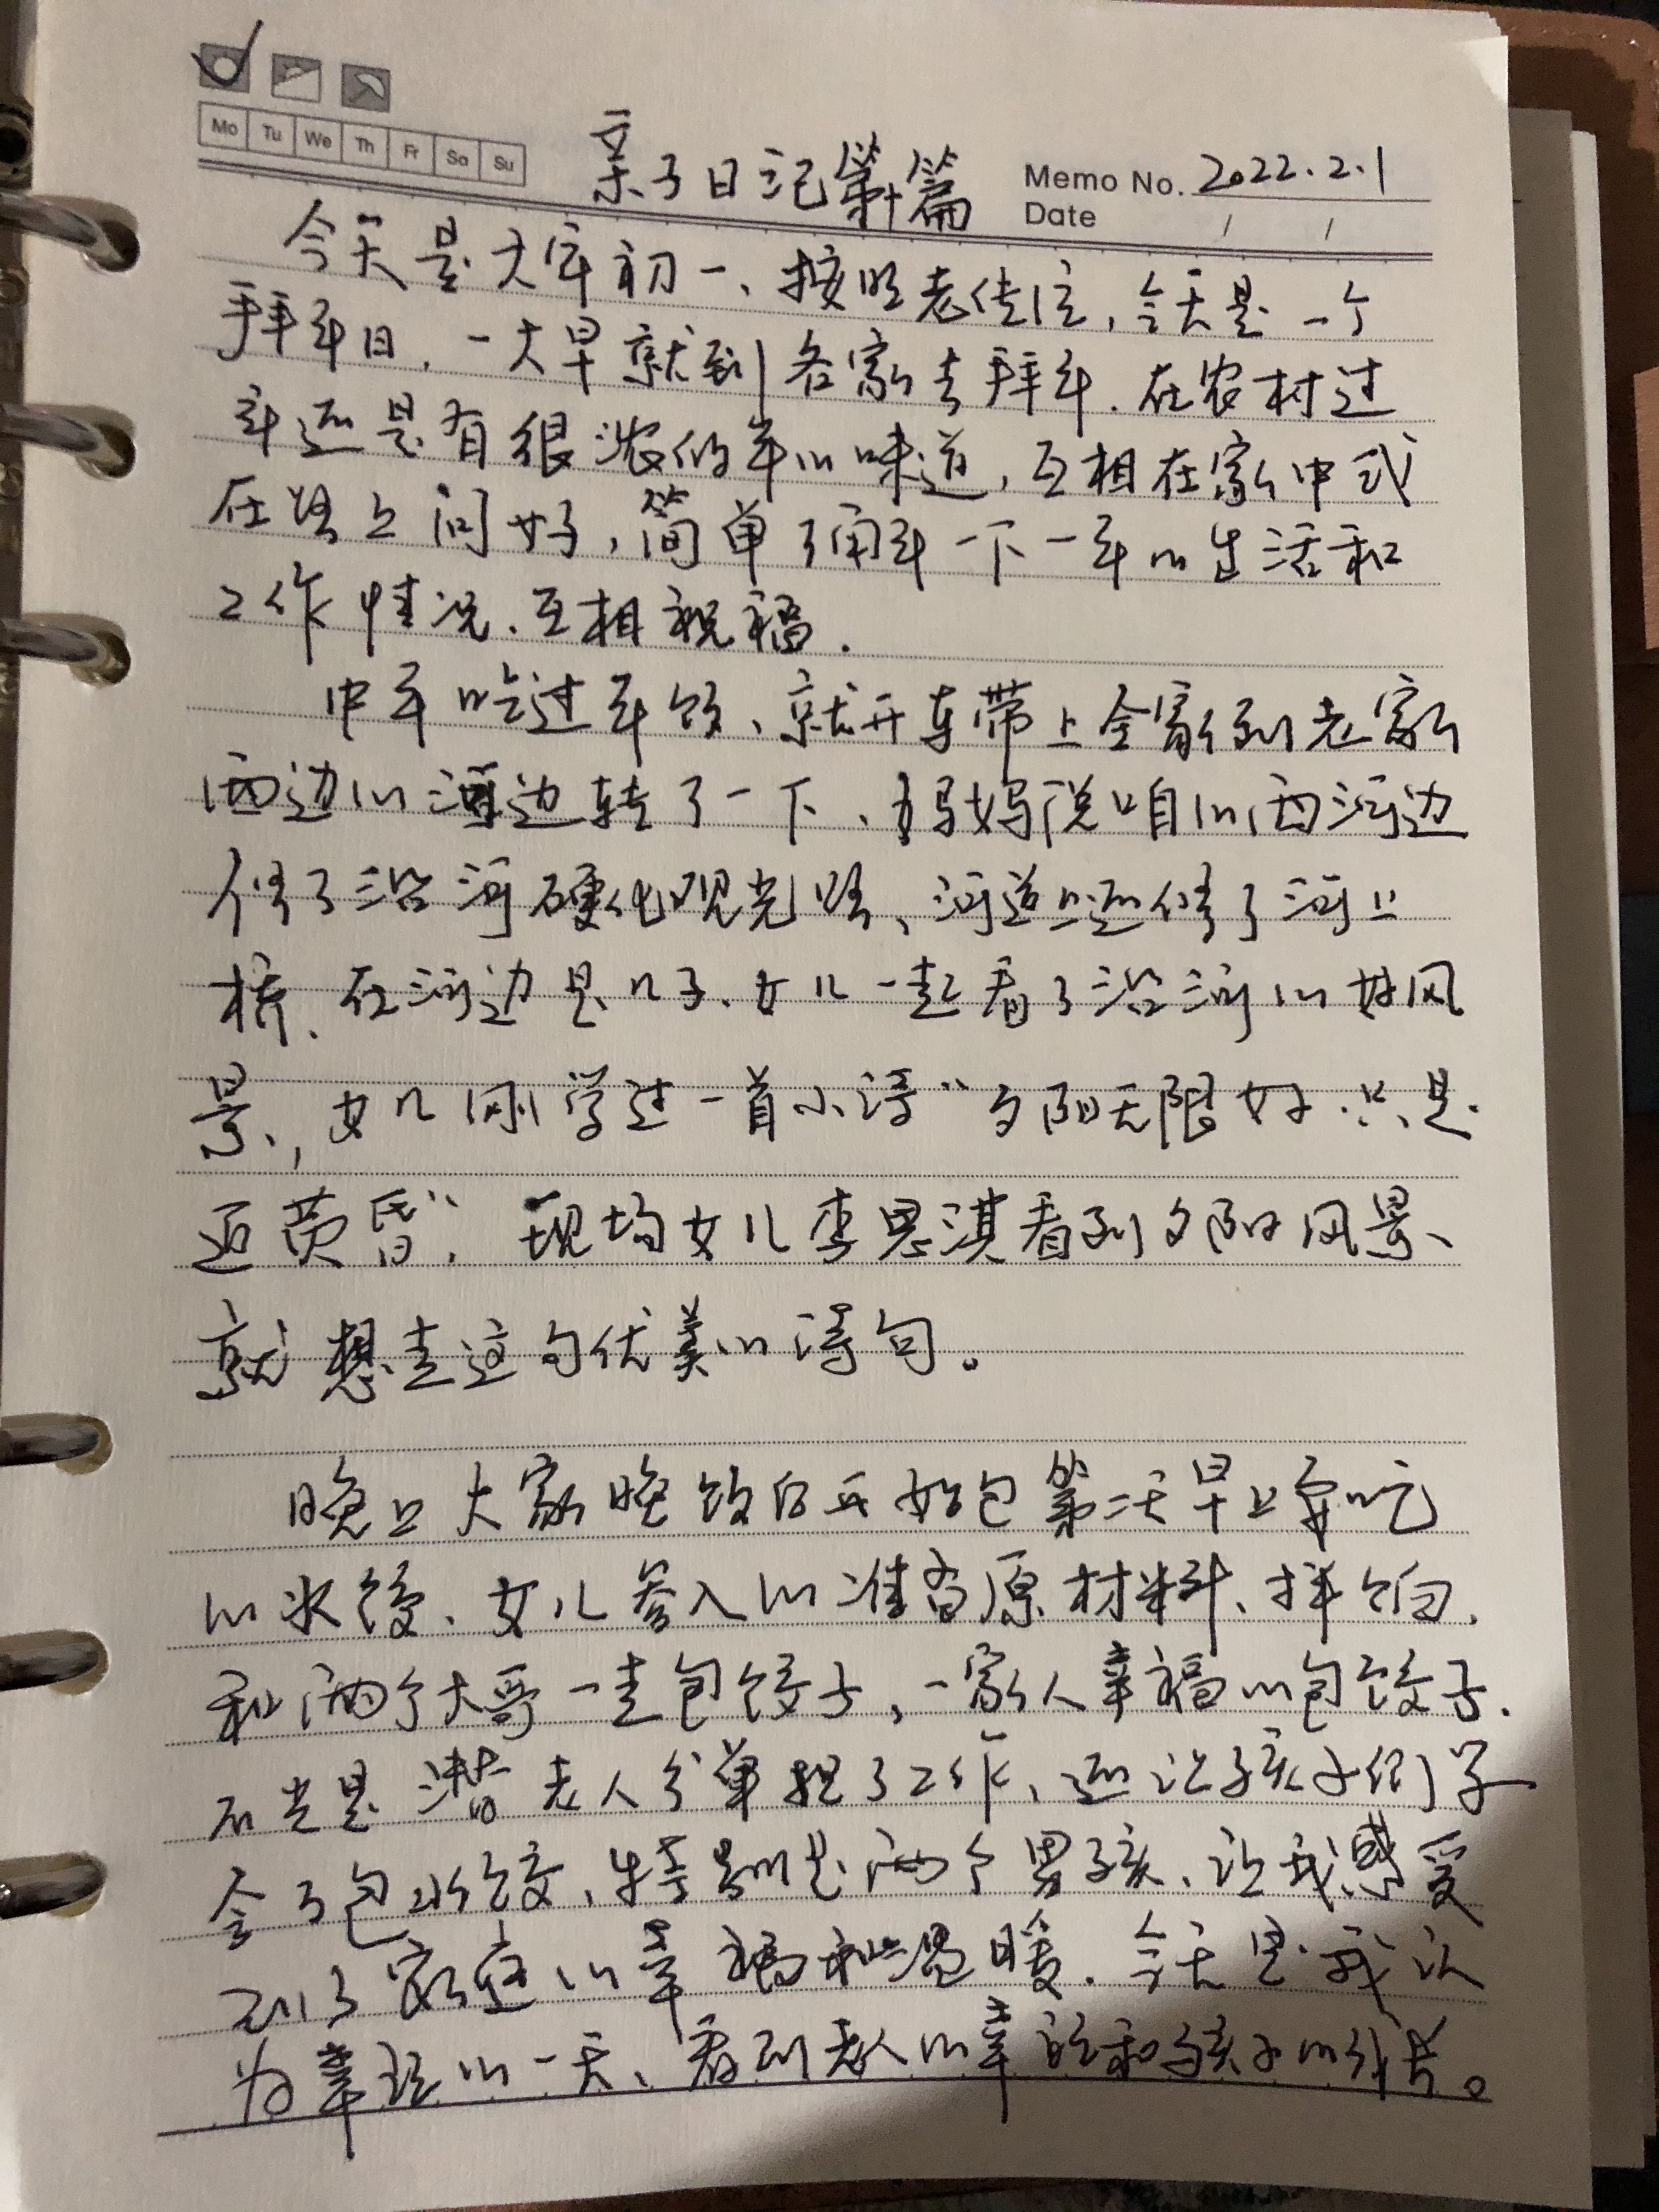 Mo Tu We Th Fr Sa Su
亲子日记第十篇
Memo No. 2022.2.1
Date / /
今天是大年初一、按照老传统,今天是一个
拜年日,一大早就到各家去拜年.在农村过
年还是有很浓的年的味道,互相在家中或
在路上问好,简单了解一下一年的生活和
工作情况、互相祝福.
中午吃过年饭、就开车带上全家到老家
西边的河边转了一下、妈妈说咱的西河边
修了沿河硬化观光路、河道上还修了河上
桥、在河边是儿子、女儿一起看了沿河的好风
景,女儿刚学过一首小诗“夕阳无限好.只是
近黄昏”,现场女儿李思淇看到夕阳风景、
就想起这句优美的诗句。
晚上大家晚饭后开始包第二天早上要吃
的水饺、女儿参入的准备原材料、拌馅.
和两个大哥一起包饺子,一家人幸福的包饺子.
不光是替老人分单担了工作,还让孩子们学
会了包水饺、特别是两个男孩、让我感受
到了家庭的幸福和温暖.今天是我认
为幸福的一天、看到老人的幸福和孩子的成长。